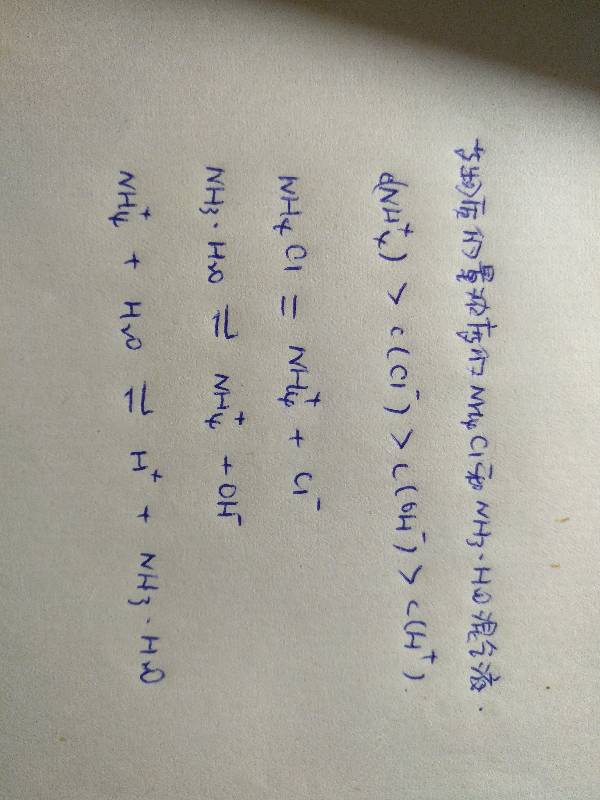 等物质的量浓度的NH₄Cl和NH₃·H₂O混合液.
c(NH₄⁺) > c(Cl⁻) > c(OH⁻) > c(H⁺).
NH₄Cl = NH₄⁺ + Cl⁻
NH₃·H₂O ⇌ NH₄⁺ + OH⁻
NH₄⁺ + H₂O ⇌ H⁺ + NH₃·H₂O